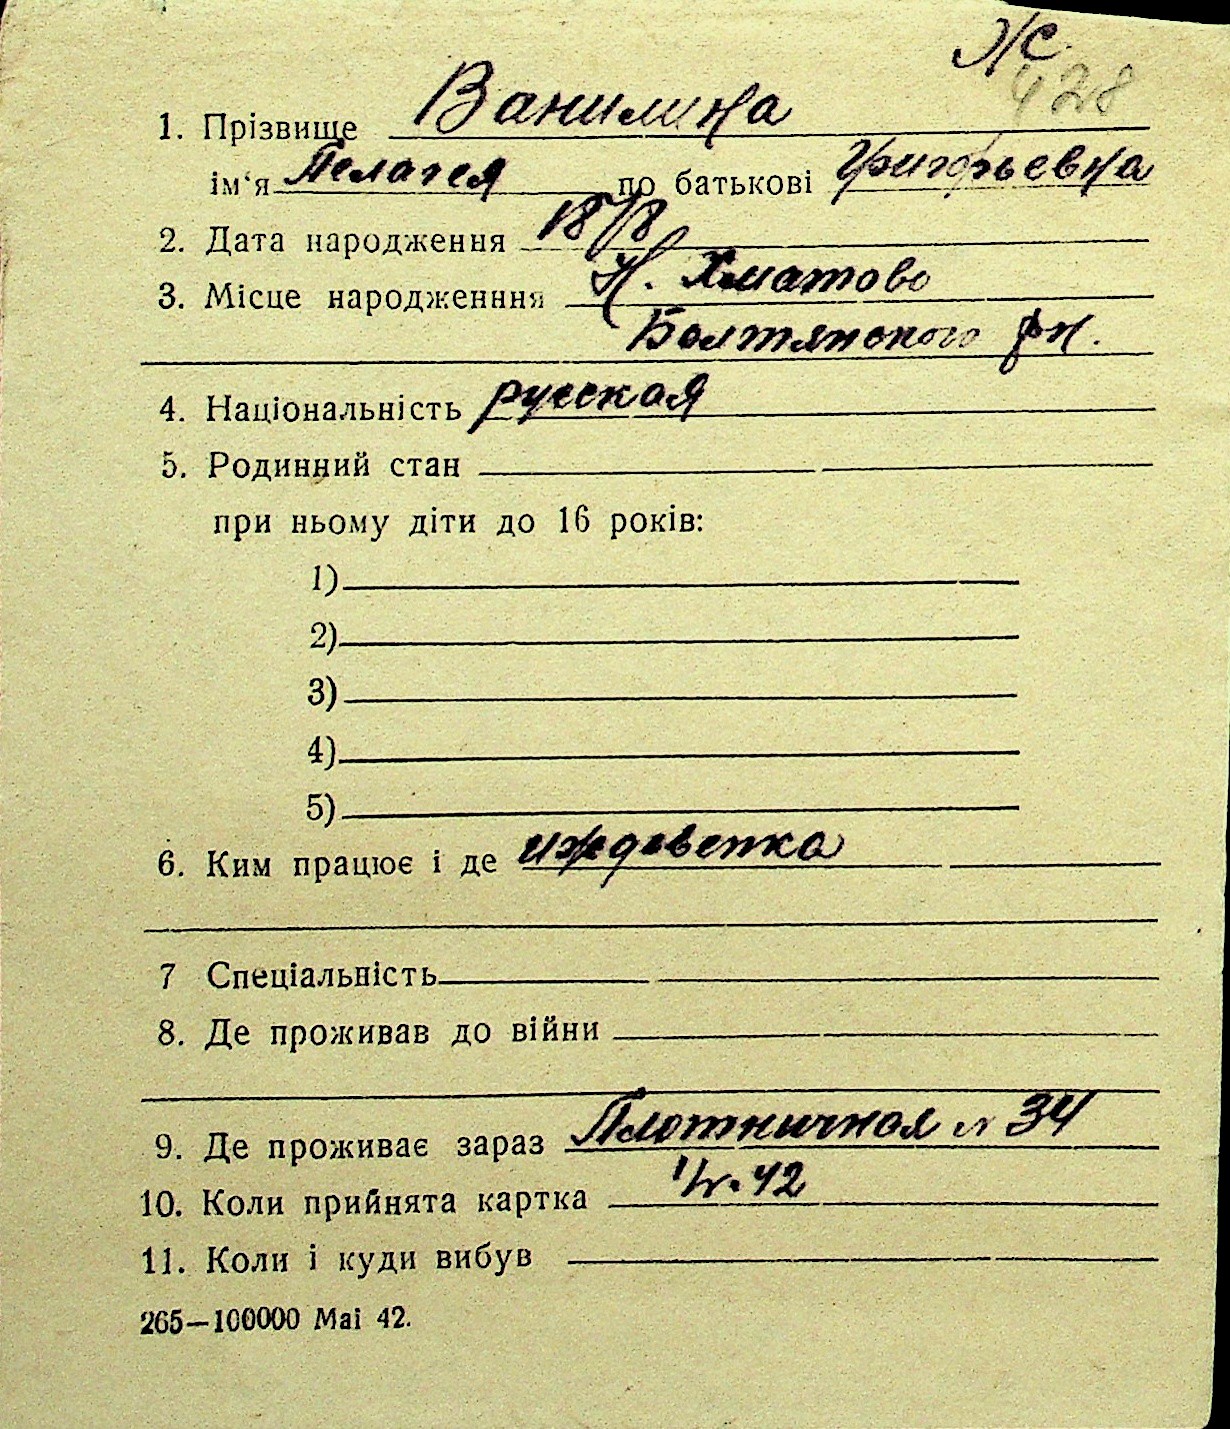 Ж.
428
1. Прізвище Ванилина
ім‘я Пелагея по батькові Григорьевна
2. Дата народження 1878
3. Місце народженння Н. Хматово
Болтянского рн.
4. Національність русская
5. Родинний стан
при ньому діти до 16 років:
1)
2)
3)
4)
5)
6. Ким працює і де иждевенка
7 Спеціальність
8. Де проживав до війни
9. Де проживає зараз Плотничная N 34
10. Коли прийнята картка 42
11. Коли і куди вибув
265—100000 Маі 42.